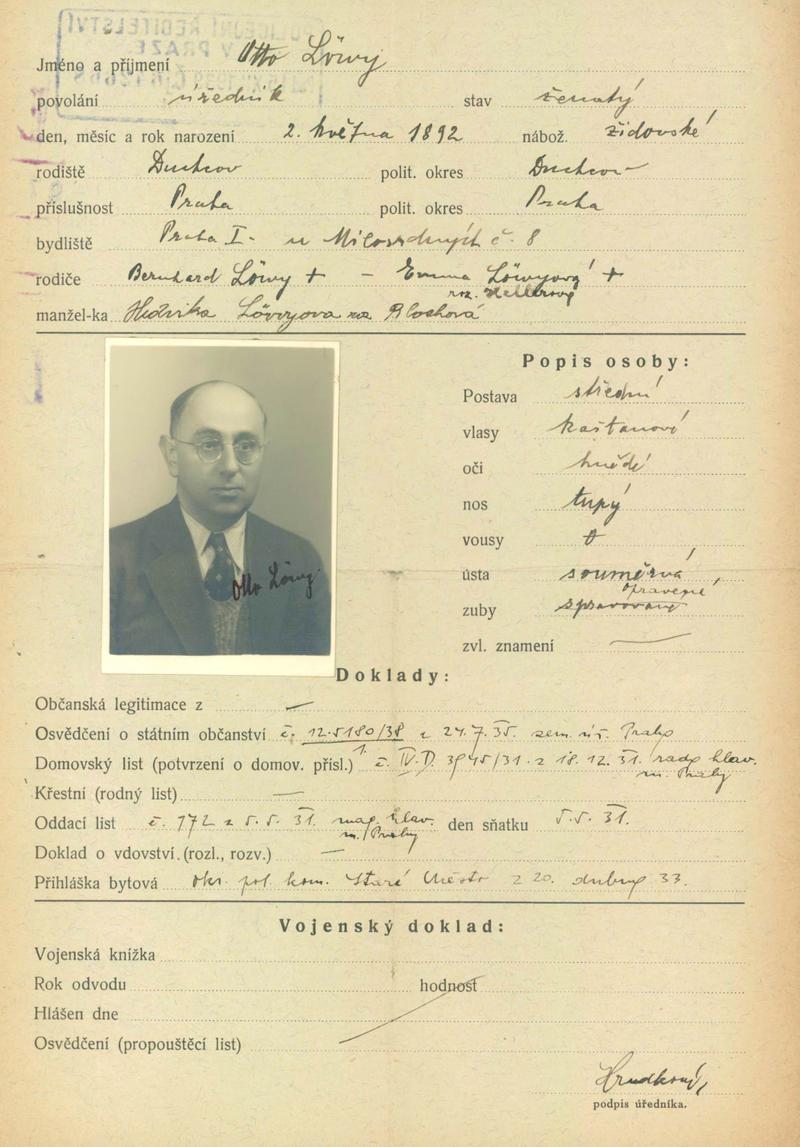 ŘEDITELSTVÍ
V PRAZE
Jméno a příjmení Otto Löwy
povolání úředník stav ženatý
den, měsíc a rok narození 2. května 1892 nábož. židovské
rodiště Duchcov polit. okres Duchcov
příslušnost Praha polit. okres Praha
bydliště Praha I - u Milosrdných č. 8
rodiče Bernhard Löwy + - Emma Löwyová +
roz. Hellerová
manžel-ka Hedvika Löwyova roz. Blochová
Popis osoby:
Postava střední
vlasy kaštanové
oči hnědé
nos tupý
vousy
ústa souměrná
opravené
zuby spravované
zvl. znamení —
Otto Löwy
Doklady:
Občanská legitimace z —
Osvědčení o státním občanství č. 12.5180/38 z 24.7.35. zem. úř. Praha
Domovský list (potvrzení o domov. přísl.) č. IV. D. 3945/31 z 18. 12. 31. hlav.
m. Prahy
Křestní (rodný list) —
Oddací list č. 172 z 5. 5. 31. mag. hlav. den sňatku 5.5. 31.
m. Prahy
Doklad o vdovství (rozl., rozv.) —
Přihláška bytová okr. pol. kom. Staré Město z 20. dubna 33.
Vojenský doklad:
Vojenská knížka
Rok odvodu hodnost
Hlášen dne
Osvědčení (propouštěcí list)
podpis úředníka.